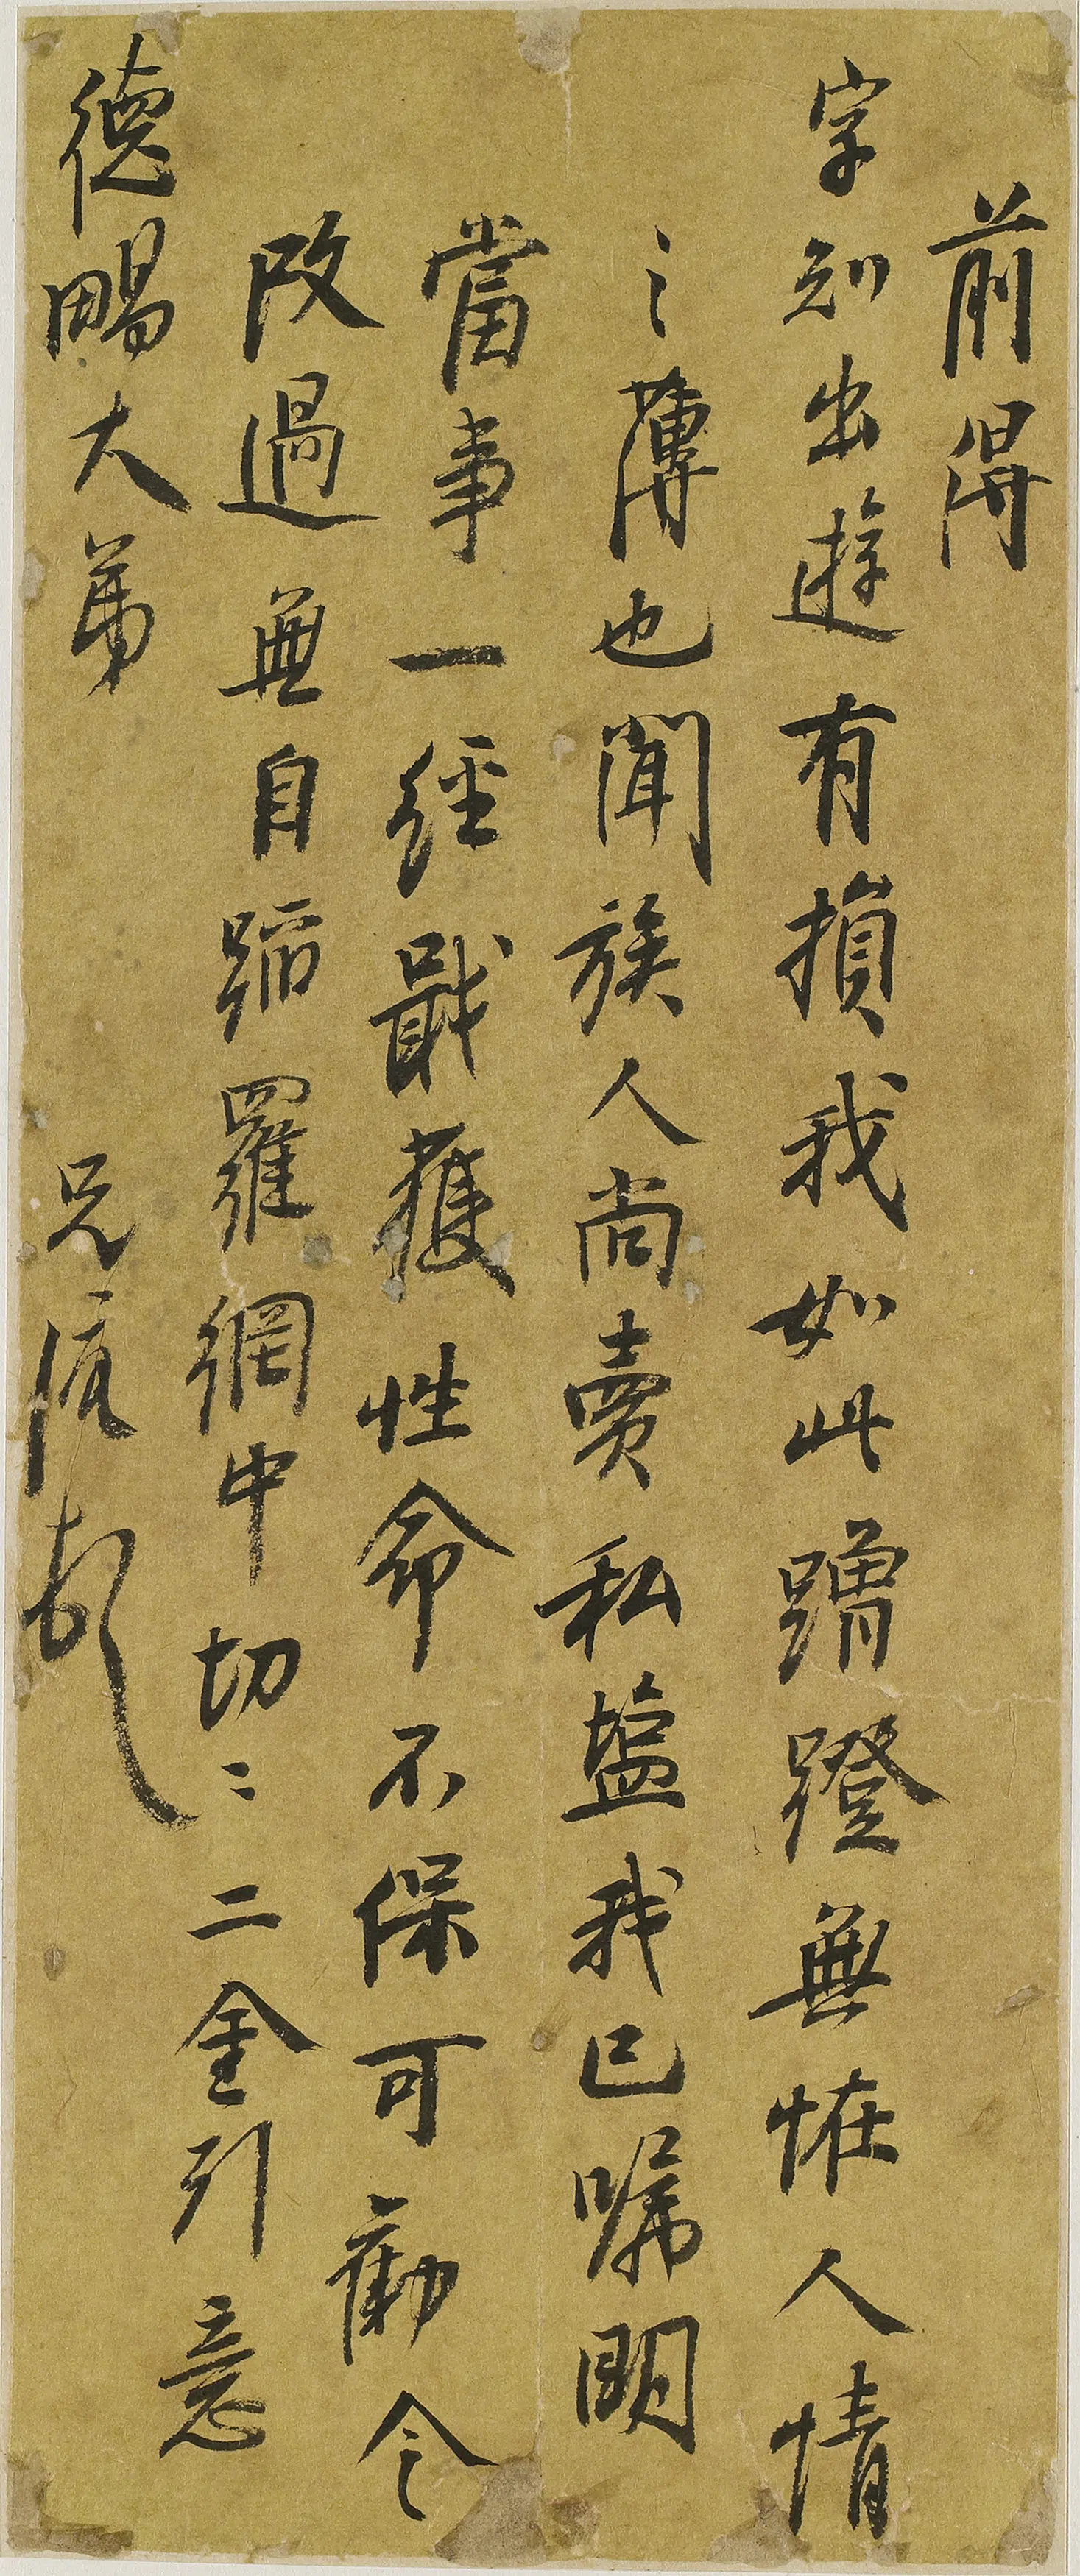 前得
字知出遊有損我如此蹭蹬無恠人情
之薄也聞族人尚賣私塩我已嘱明
當事一經戢獲性命不保可勸令
改過無自蹈羅網中切〻二金引意
德暘大弟
兄